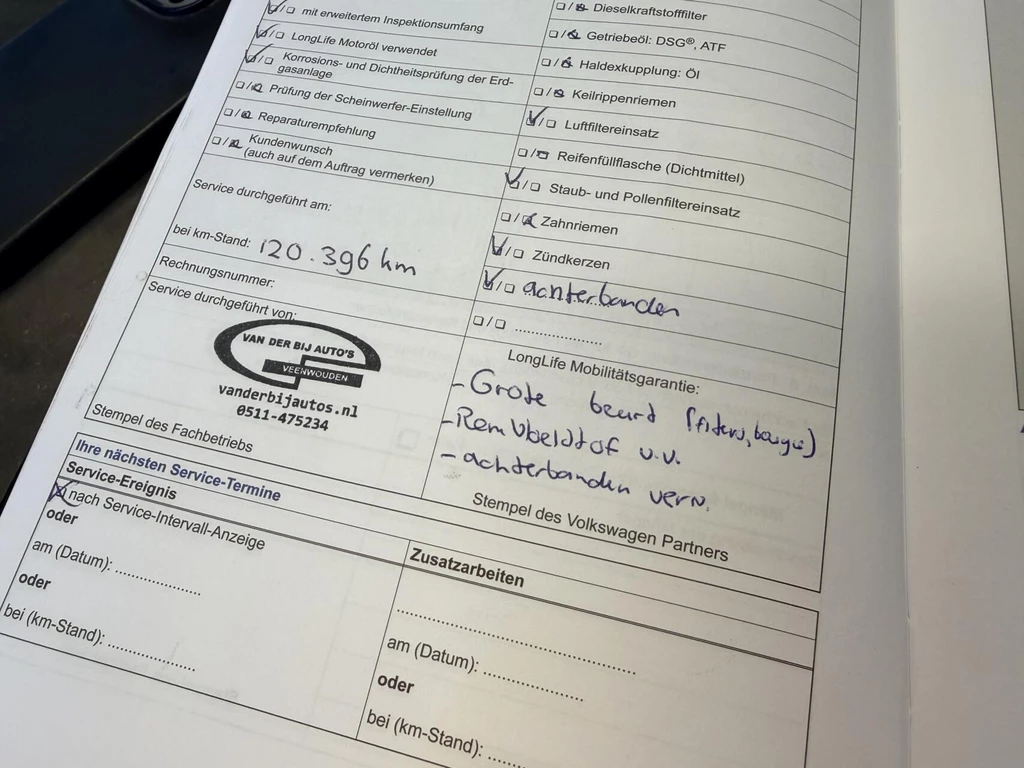 mit erweitertem Inspektionsumfang
LongLife Motoröl verwendet
Korrosions- und Dichtheitsprüfung der Erd-
gasanlage
Prüfung der Scheinwerfer-Einstellung
Reparaturempfehlung
Kundenwunsch
(auch auf dem Auftrag vermerken)
Service durchgeführt am:
bei km-Stand: 120.396 km
Rechnungsnummer:
Service durchgeführt von:
VAN DER BIJ AUTO'S
VEENWOUDEN
vanderbijautos.nl
0511-475234
Stempel des Fachbetriebs
Dieselkraftstofffilter
Getriebeöl: DSG®, ATF
Haldexkupplung: Öl
Keilrippenriemen
Luftfiltereinsatz
Reifenfüllflasche (Dichtmittel)
Staub- und Pollenfiltereinsatz
Zahnriemen
Zündkerzen
achterbanden
LongLife Mobilitätsgarantie:
- Grote beurt
- Rem v.v.
- achterbanden vern.
Stempel des Volkswagen Partners
Ihre nächsten Service-Termine
Service-Ereignis
nach Service-Intervall-Anzeige
oder
am (Datum):
oder
bei (km-Stand):
Zusatzarbeiten
am (Datum):
oder
bei (km-Stand):